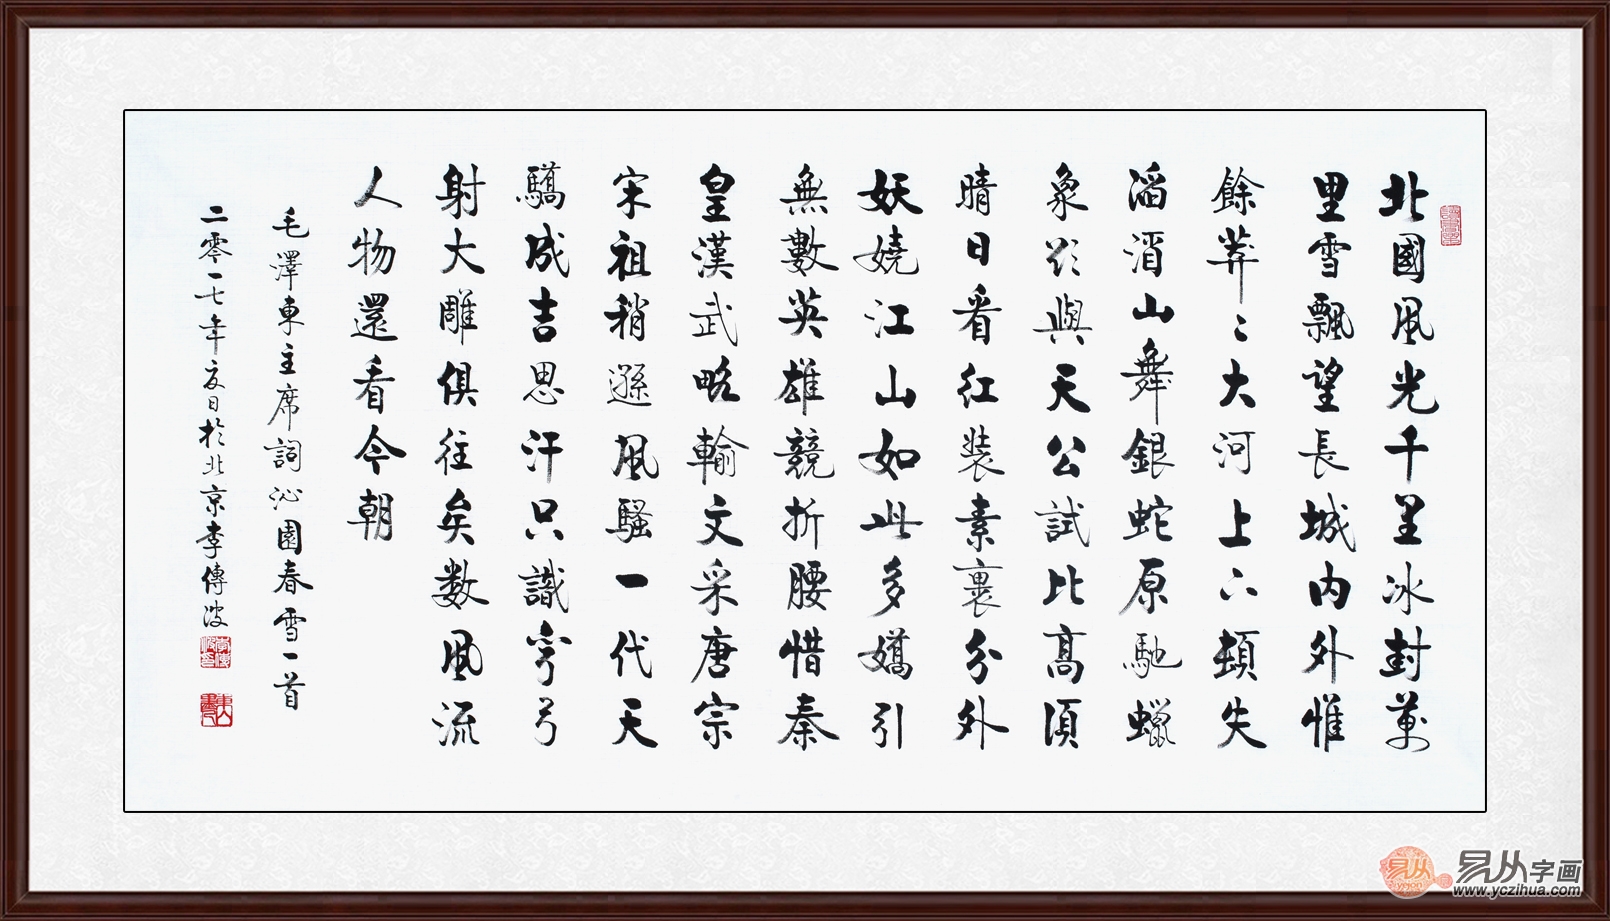 北國風光千里冰封萬
里雪飄望長城内外惟
餘莽〻大河上下頓失
滔滔山舞銀蛇原馳蠟
象欲與天公試比高須
晴日看红裝素裹分外
妖嬈江山如此多嬌引
無數英雄競折腰惜秦
皇漢武略輸文采唐宗
宋祖稍遜風騷一代天
驕成吉思汗只識彎弓
射大雕俱往矣数風流
人物還看今朝
毛澤東主席詞沁園春雪一首
二零一七年夏日於北京李傳波
易从字画
www.yczihua.com